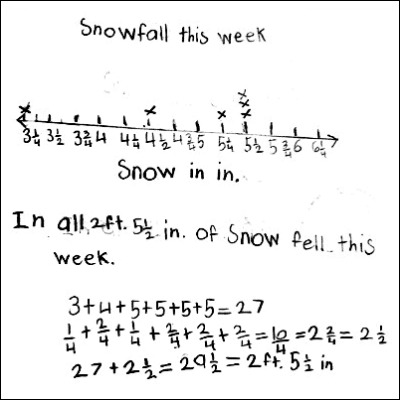 Snowfall this week
x x x x x x
3 1/4 3 1/2 3 3/4 4 4 1/4 4 1/2 4 3/4 5 5 1/4 5 1/2 5 3/4 6 6 1/4
Snow in in.
In all 2ft. 5 1/2 in. of Snow fell this
week.
3+4+5+5+5+5=27
1/4 + 2/4 + 1/4 + 2/4 + 2/4 + 2/4 = 10/4 = 2 2/4 = 2 1/2
27 + 2 1/2 = 29 1/2 = 2ft. 5 1/2 in